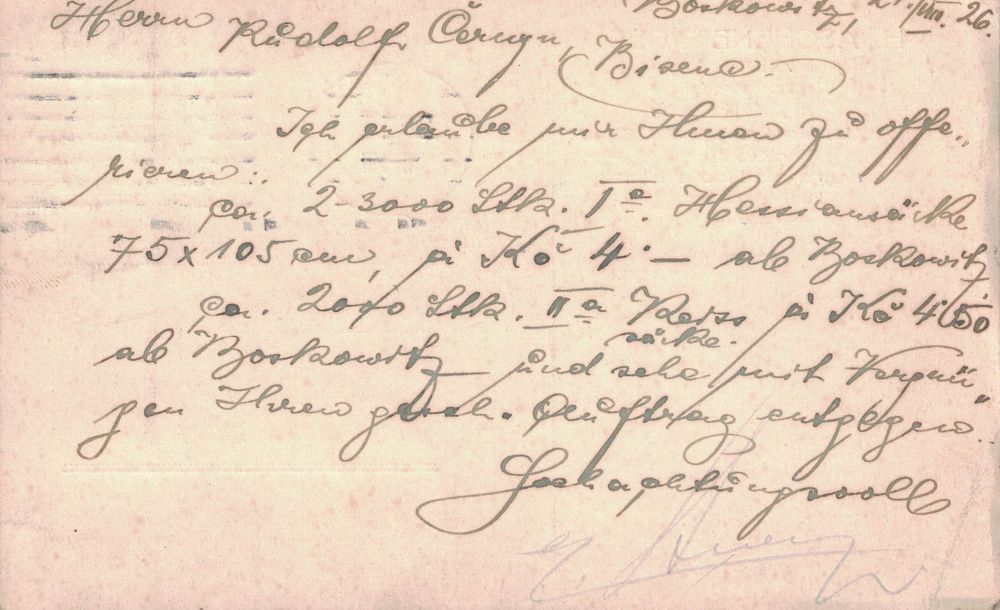 Herrn Boskowitz, 21./VIII. 26.
Rudolf Černy, Bisenz.
Ich erlaube mir Ihnen zu offe„
rieren:.
ca. 2-3000 Stk. Iª Hessiansäcke
75 x 105 cm, á Kč 4·— ab Boskowitz,
ca. 2000 Stk. IIª Reiss á Kč 4·50
säcke.
ab Boskowitz und sehe mit Vergnü„
gen Ihren gesch. Auftrag entgegen.
Hochachtungsvoll